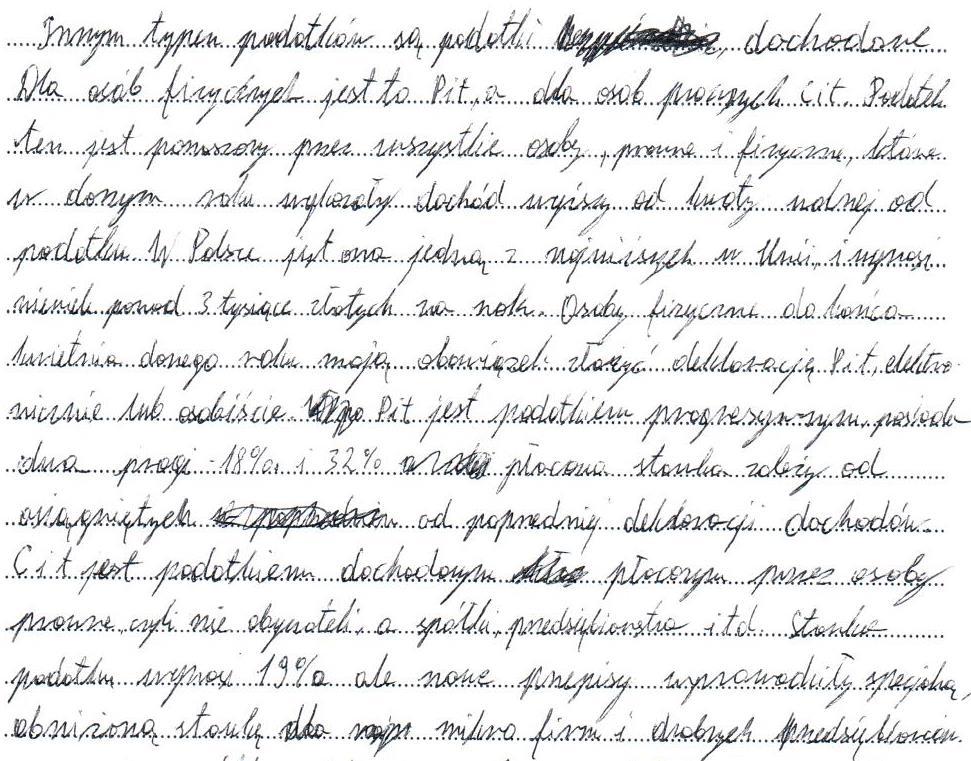 Innym typem podatków są podatki , dochodowe
Dla osób fizycznych jest to Pit, a dla osób prawnych Cit. Podatek
ten jest ponoszony przez wszystkie osoby, prawne i fizyczne, które
w danym roku wykazały dochód wyższy od kwoty wolnej od
podatku. W Polsce jest ona jedną z najniższych w Unii, i wynosi
niewiele ponad 3 tysiące złotych za rok. Osoby fizyczne do końca
kwietnia danego roku mają obowiązek złożyć deklarację Pit, elektro-
nicznie lub osobiście. Pit jest podatkiem progresywnym, posiada
dwa progi - 18% i 32% płacona stawka zależy od
osiągniętych od poprzedniej deklaracji dochodów.
Cit jest podatkiem dochodowym płaconym przez osoby
prawne, czyli nie obywateli, a spółki, przedsiębiorstwa itd. Stawka
podatku wynosi 19% ale nowe przepisy wprowadziły specjalną,
obniżoną stawkę dla mikro firm i drobnych